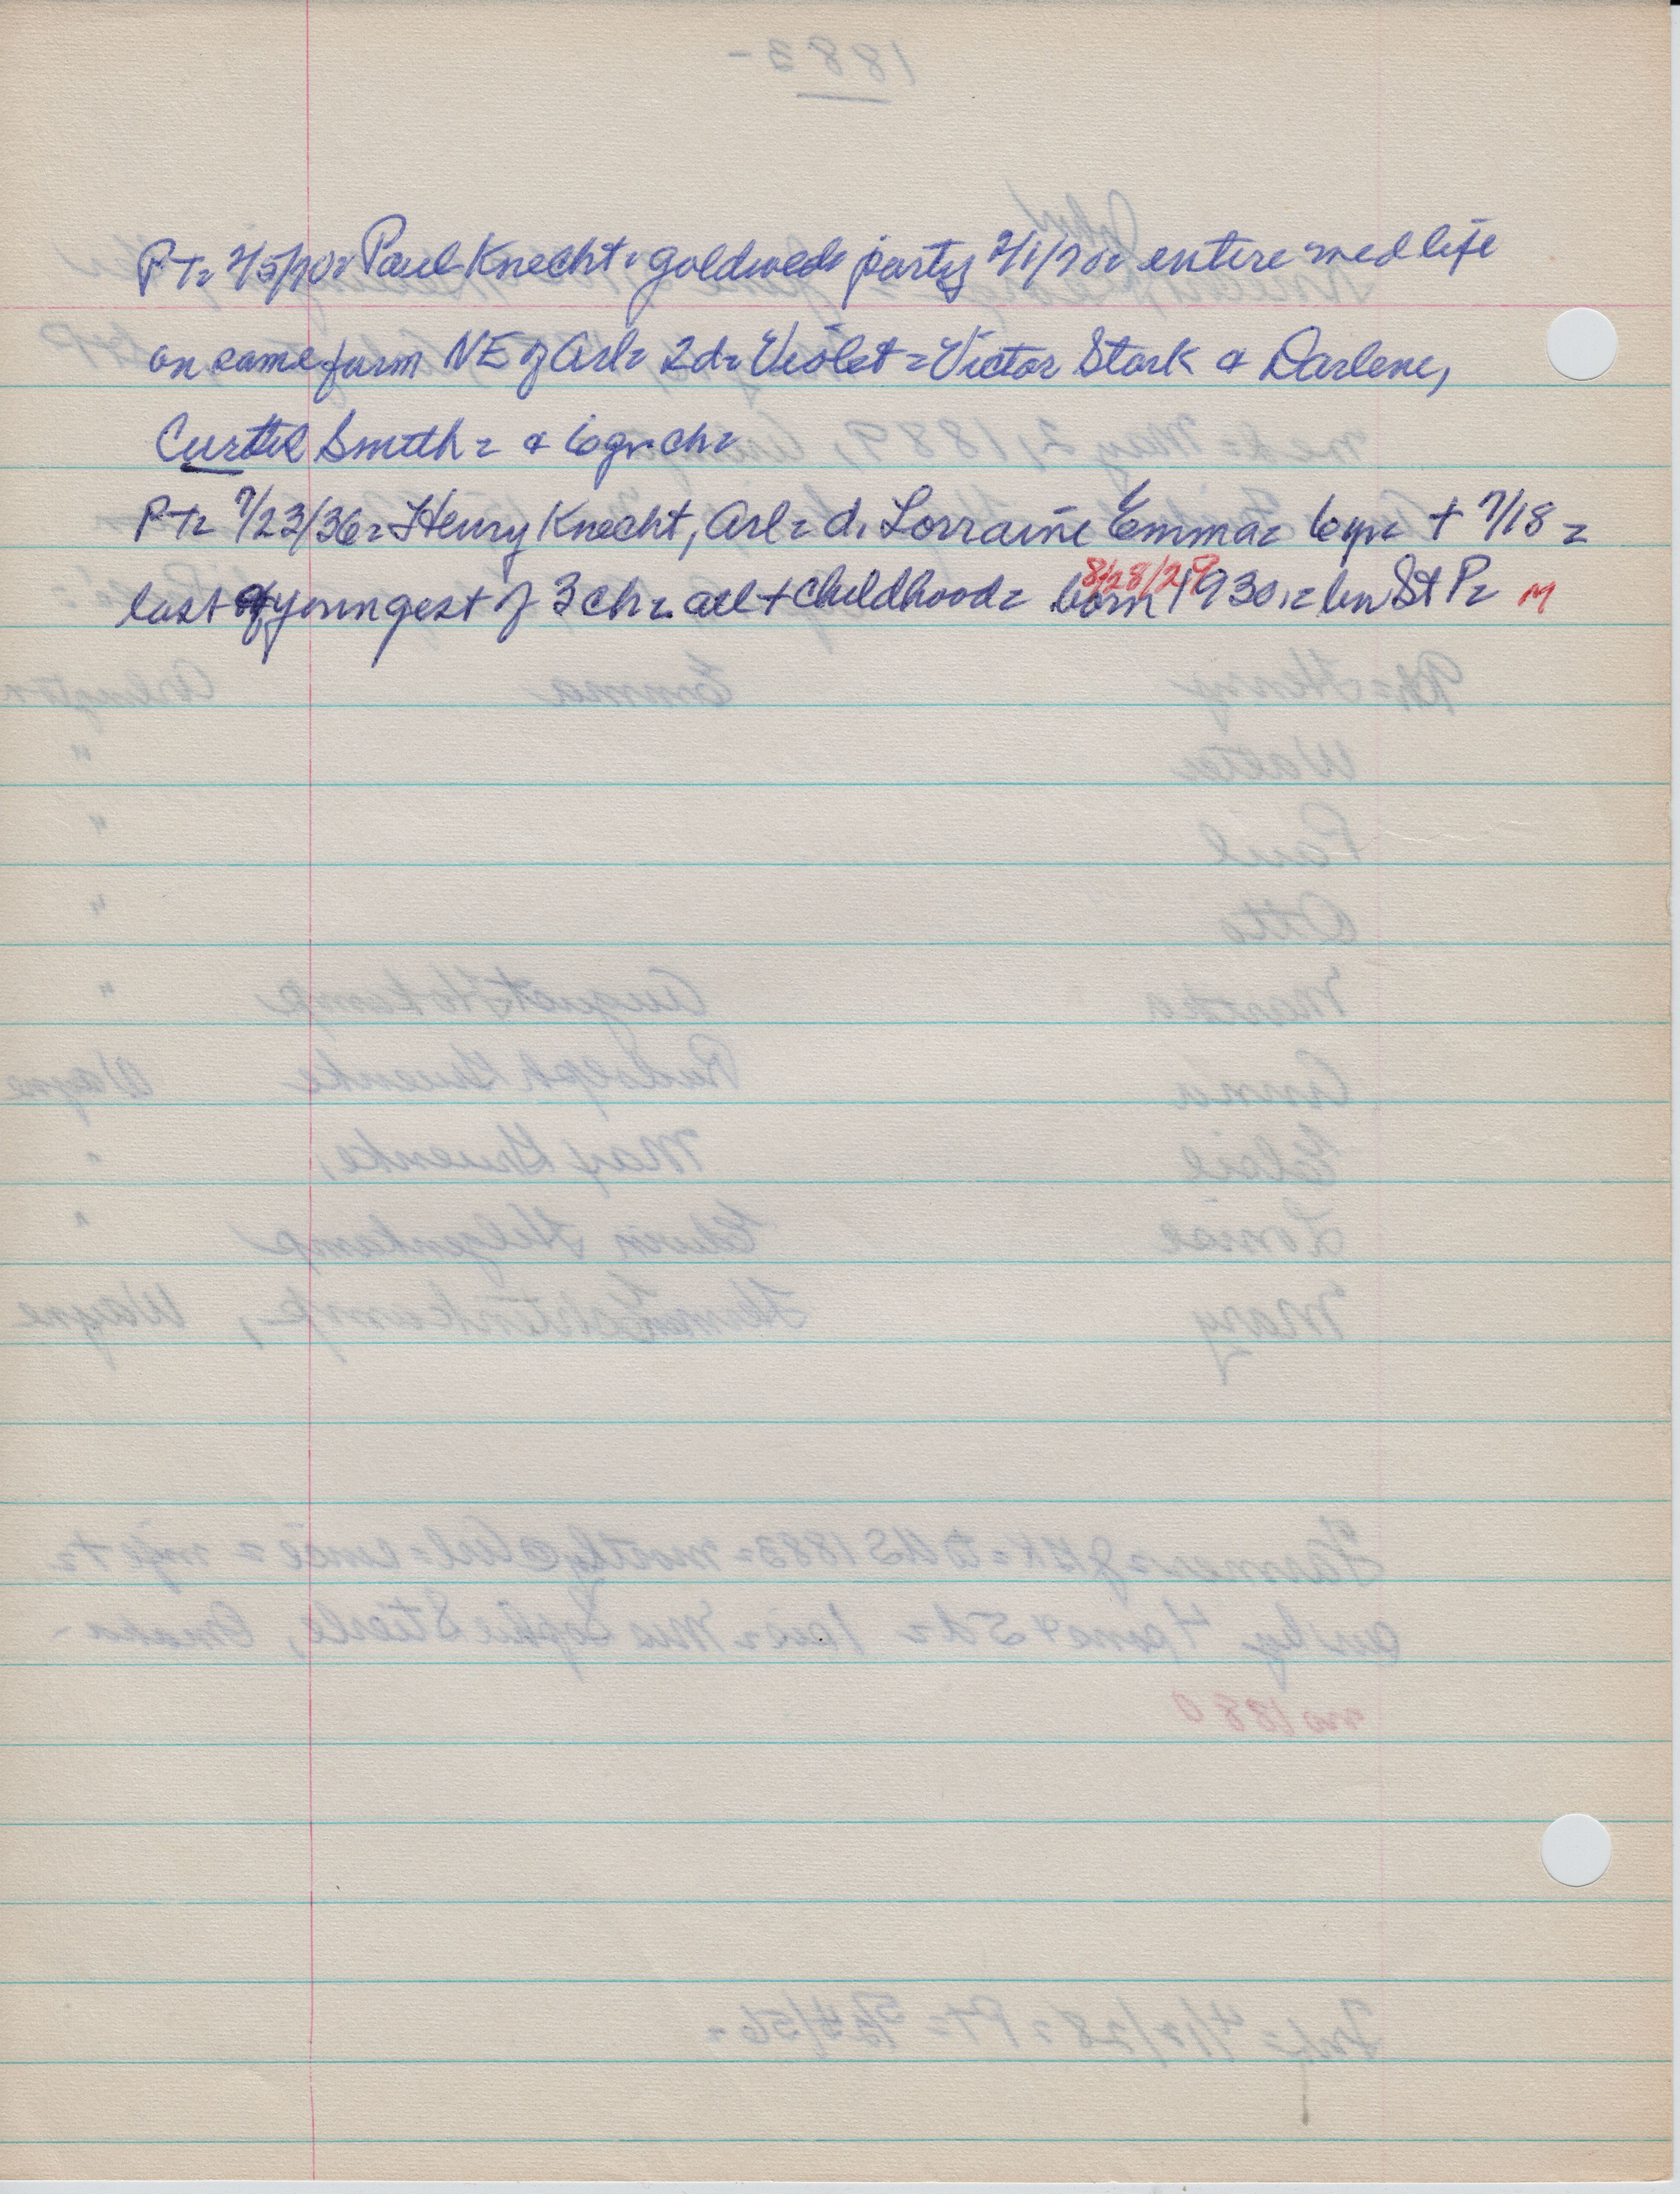 PT= 2/5/70= Paul Knecht = goldweds party 2/1/70= entire wed life
on same farm NE of Arl= 2d= Violet = Victor Stork & Darlene,
Curtis Smith = & 6 gr. ch=
PT= 7/23/36= Henry Knecht, Arl= d. Lorraine Emma= 6 yr= + 7/18 =
8/28/29
last of youngest of 3 ch= all + childhood= born 1930,= bur St P= M